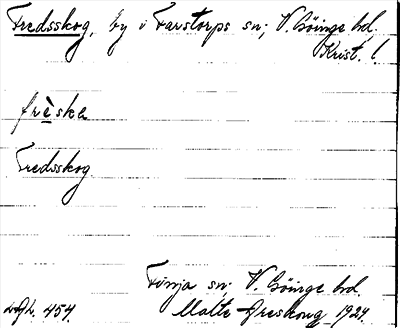 Fredsskog, by i Farstorps sn; V. Göinge hd.
Krist. l.
frèske
Fredsskog
Finja sn; V. Göinge hd.
454. Malte Areskoug 1924.